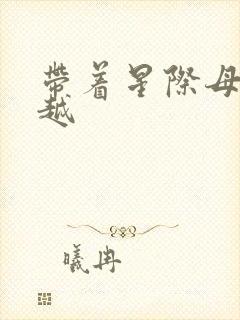 带着星際母
越
曦冉